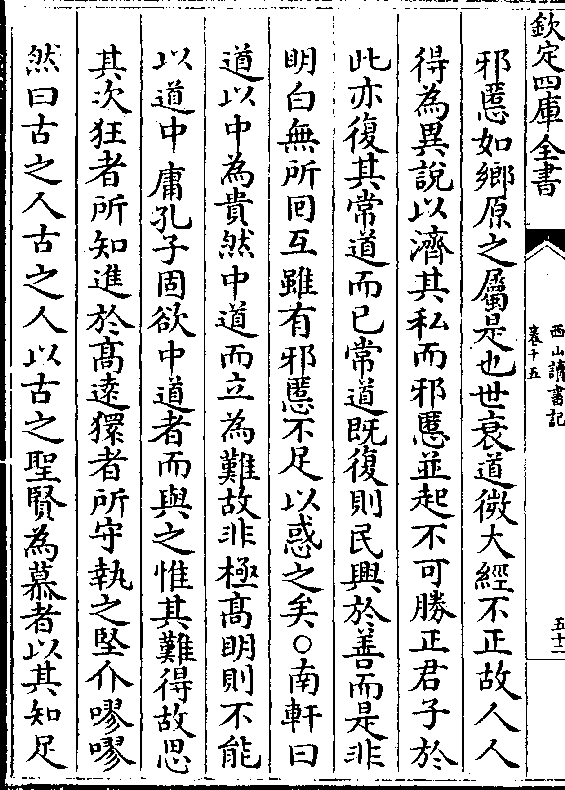 欽定四庫全書
西山讀書記
卷十五
五十二
邪慝如鄉原之屬是也世衰道微大經不正故人人
得為異說以濟其私而邪慝並起不可勝正君子於
此亦復其常道而已常道既復則民興於善而是非
明白無所囘互雖有邪慝不足以惑之矣○南軒曰
道以中為貴然中道而立為難故非極髙明則不能
以道中庸孔子固欲中道者而與之惟其難得故思
其次狂者所知進於髙遠獧者所守執之堅介嘐嘐
然曰古之人古之人以古之聖賢為慕者以其知足